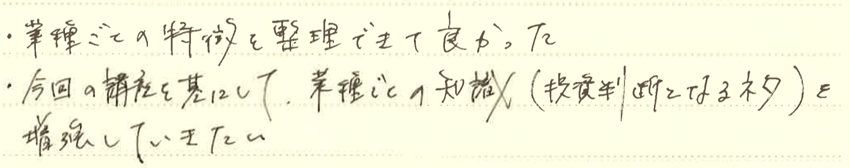 ・業種ごとの特徴を整理できて良かった
・今回の講座を基にして、業種ごとの知識(投資判断となるネタ)を
増強していきたい